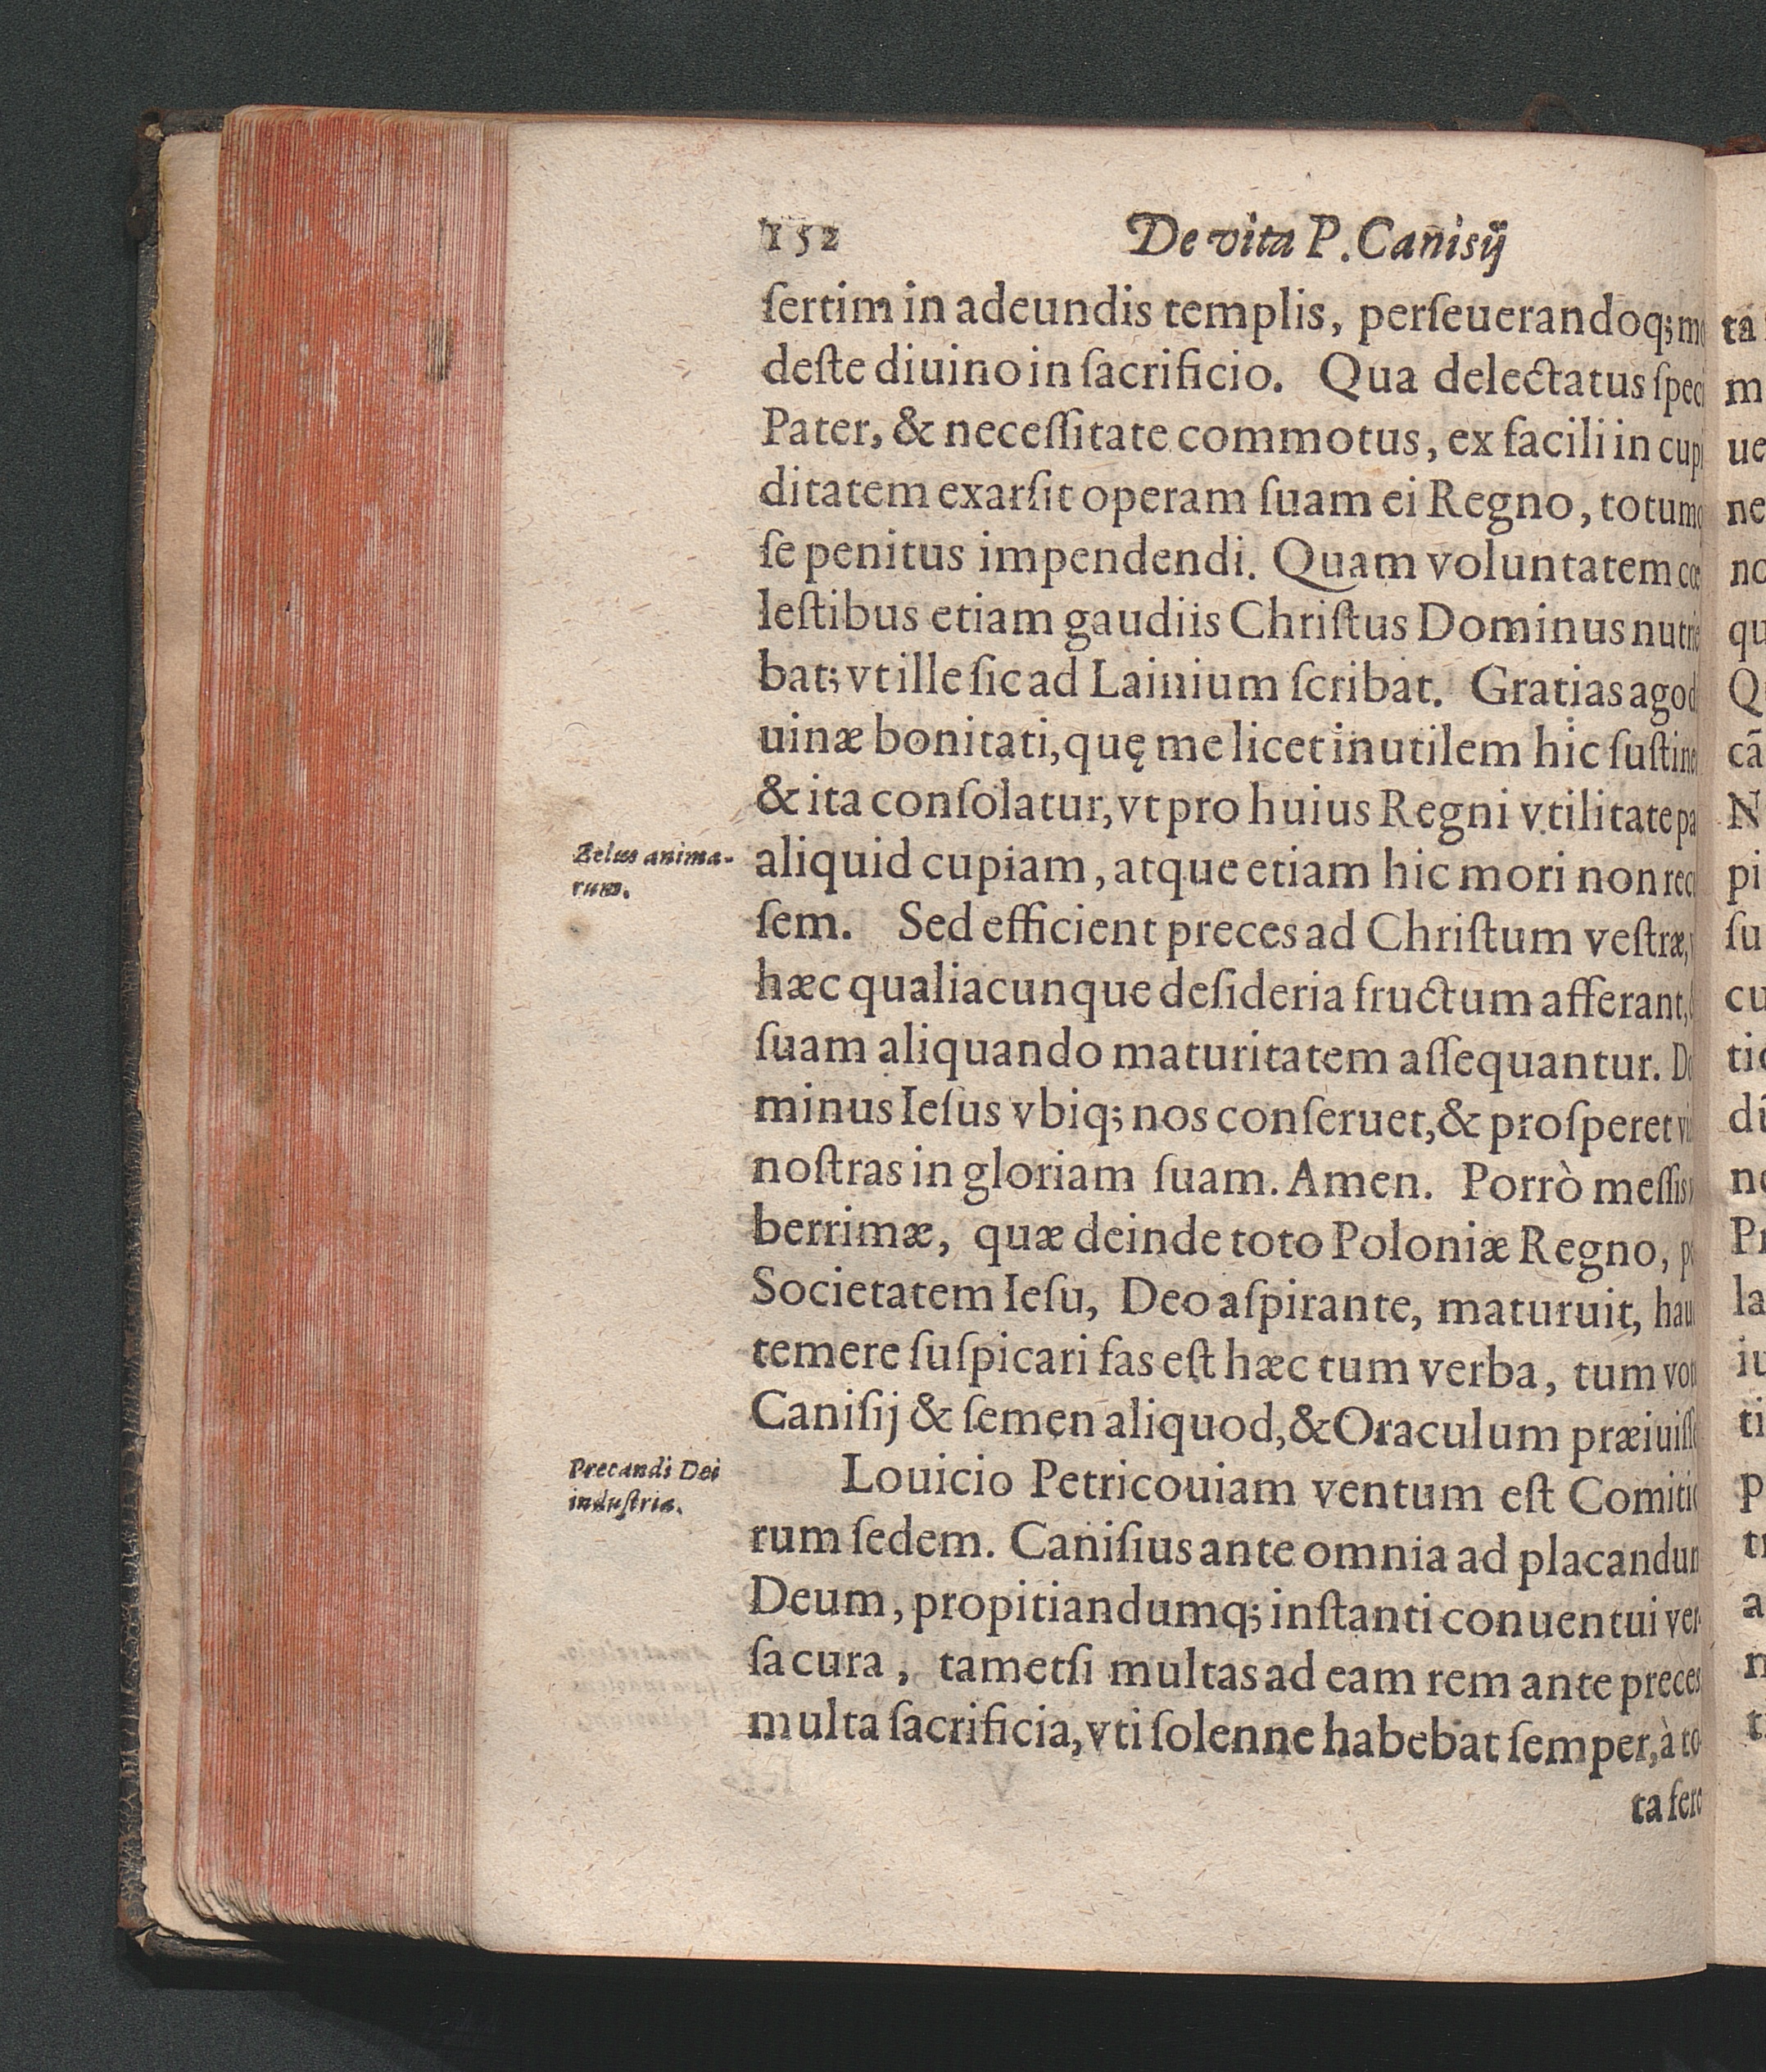 152 De vita P. Canisij
ſertim in adeundis templis, perſeuerandoq;
deſte diuino in ſacrificio. Qua delectatus
Pater, & neceſſitate commotus, ex facili in
ditatem exarſit operam ſuam ei Regno,
ſe penitus impendendi. Quam voluntatem
leſtibus etiam gaudiis Chriſtus Dominus
bat; vt ille ſic ad Lainium ſcribat. Gratias ago
uinæ bonitati, quę me licet inutilem hic
& ita conſolatur, vt pro huius Regni vtilitate
Zelus anima-
rum.
aliquid cupiam, atque etiam hic mori non
ſem. Sed efficient preces ad Chriſtum veſtræ,
hæc qualiacunque deſideria fructum afferant,
ſuam aliquando maturitatem aſſequantur.
minus Ieſus vbiq; nos conſeruet, & proſperet
noſtras in gloriam ſuam. Amen. Porrò meſſis
berrimæ, quæ deinde toto Poloniæ Regno,
Societatem Ieſu, Deo aſpirante, maturuit,
temere ſuſpicari fas eſt hæc tum verba, tum
Caniſij & ſemen aliquod, & Oraculum
Precandi Dei
induſtria.
Louicio Petricouiam ventum eſt
rum ſedem. Caniſius ante omnia ad
Deum, propitiandumq; inſtanti conuentui ver-
ſa cura, tametſi multas ad eam rem ante preces
multa ſacrificia, vti ſolenne habebat ſemper, à to-
ta fere